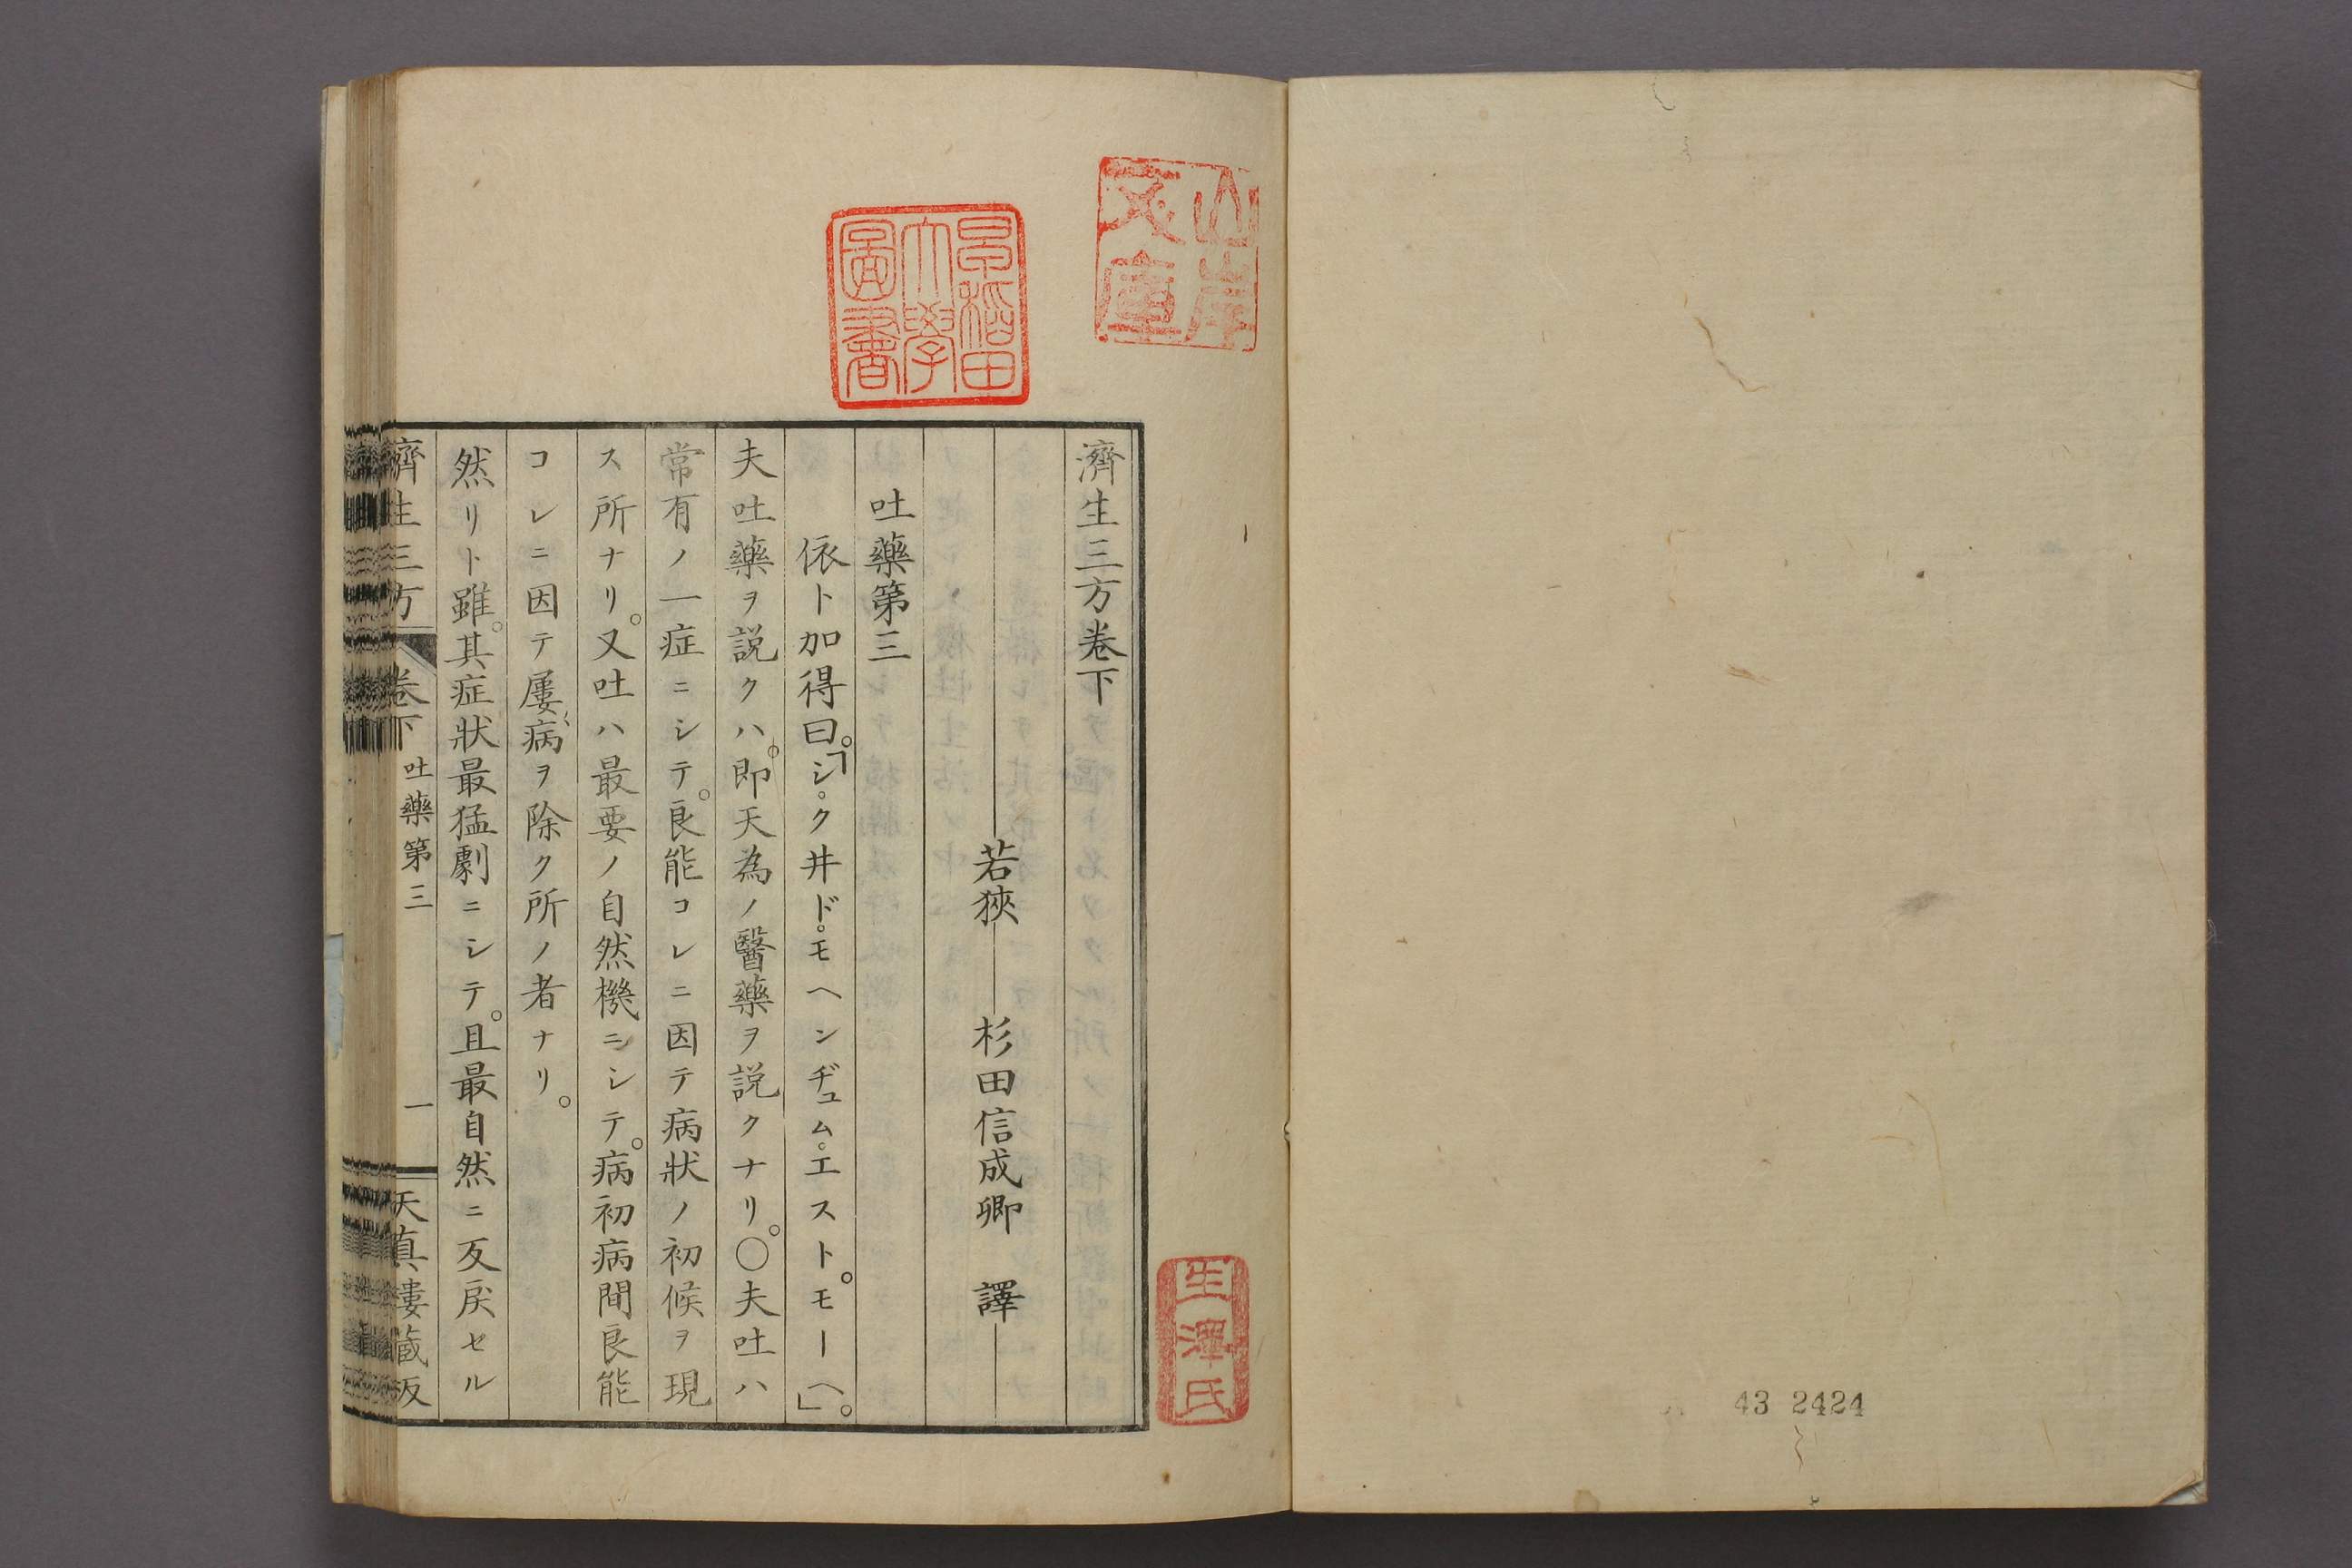 43 2424
山岸
文庫
早稲田
大學
圖書
生澤氏
濟生三方卷下
若狹 杉田信成卿 譯
吐藥第三
依ト加得曰。「シ。ク井ド。モヘンヂュム。エスト。モーヘ」。
夫吐藥ヲ説クハ。即天為ノ醫藥ヲ説クナリ。○夫吐ハ
常有ノ一症ニシテ。良能コレニ因テ病狀ノ初候ヲ現
ス所ナリ。又吐ハ最要ノ自然機ニシテ。病初病間良能
コレニ因テ屢〻病ヲ除ク所ノ者ナリ。
然リト雖。其症狀最猛劇ニシテ。且最自然ニ反戾セル
濟生三方 卷下 吐藥第三 一 天真樓藏板